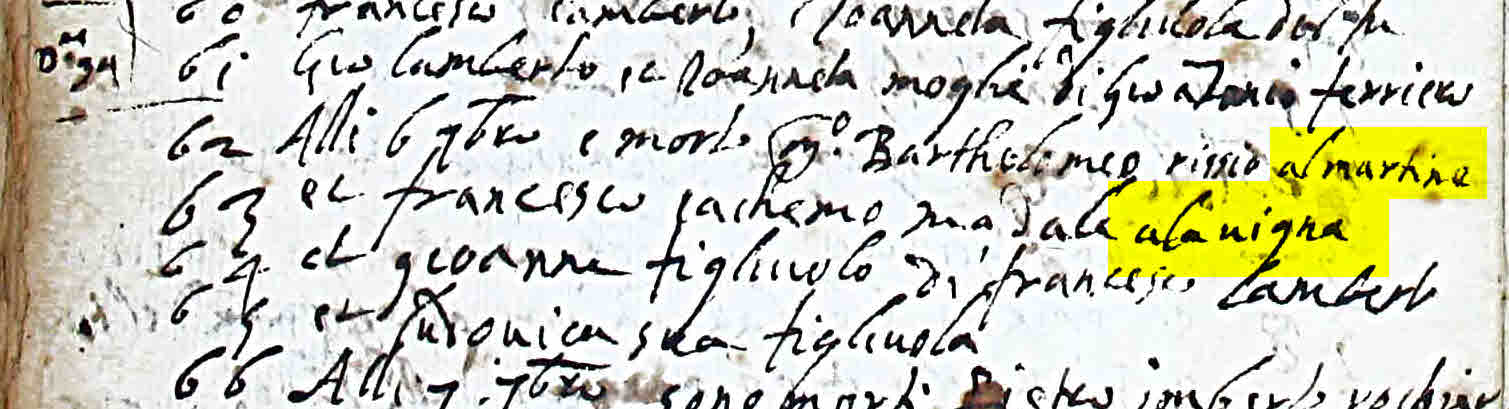 60 francesco lamberto, Joannela figliuola del
61 Gio lamberto et Joannela moglie di gio Antonio ferriero
62 Alli 6 7bro e morto m.º Bartholomeo rissio al martine
63 et francesco iachemo madala ala uigna
64 et gioanne figliuolo di francesco lamberto
65 et ludonica sua figliuola
66 Alli 7 7bro sono morti Pietro imberto